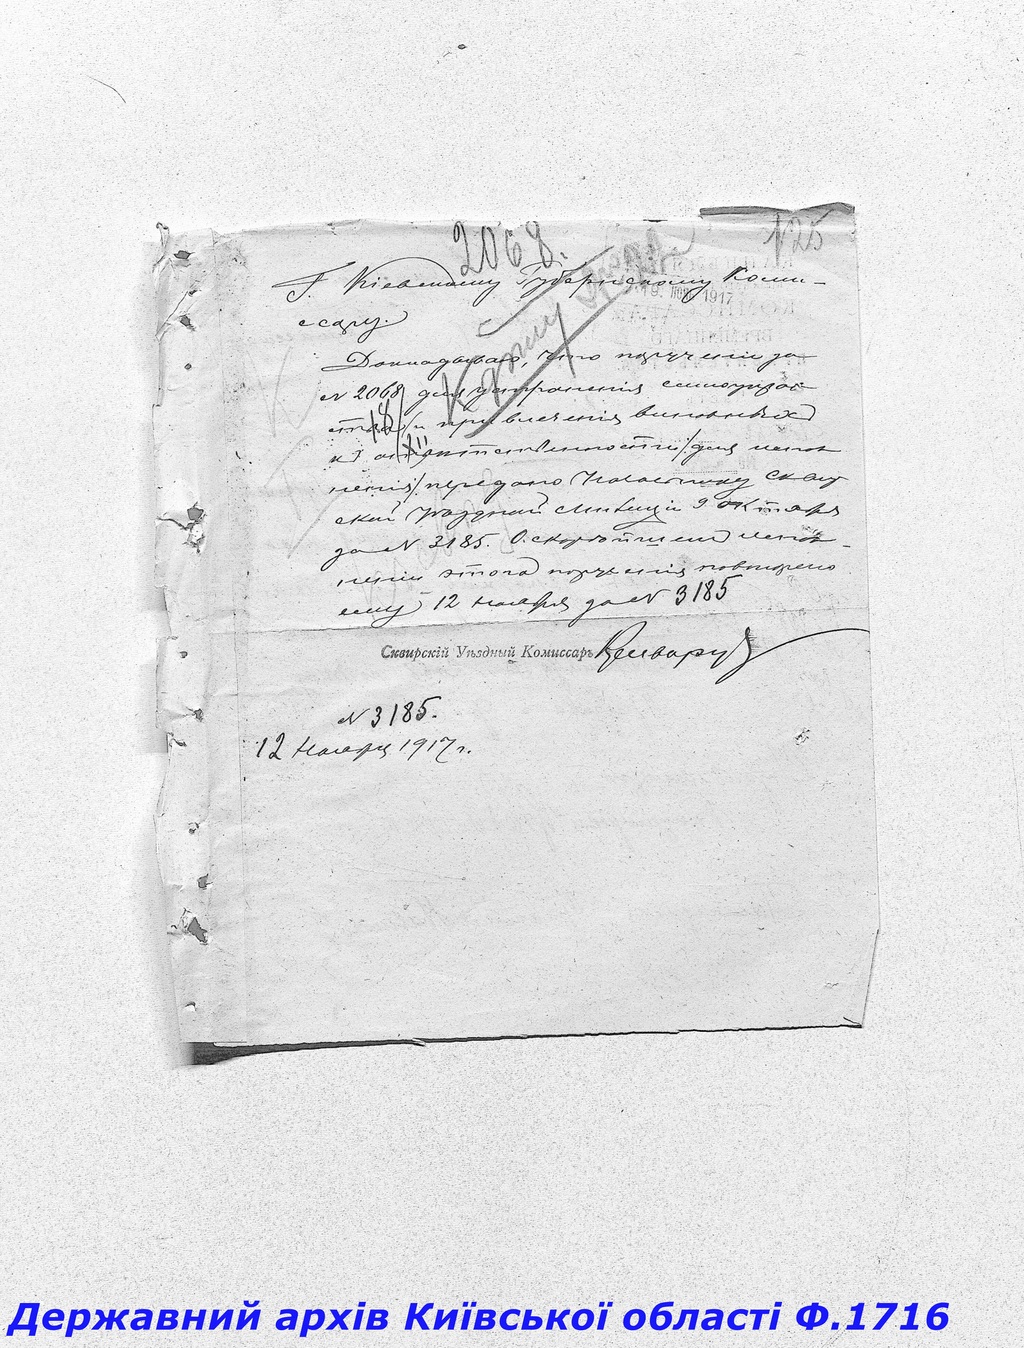 2068.
125
Г. Кіевскому Губернскому Коми-
ссару.
19 1917
Докладываю, что порученіе за
№ 2068 для устраненія самоуправ
ства и привлеченія виновныхъ
къ отвѣтственности/для испол
ненія/передано Начальнику Сквир
ской Уѣздной Милиціи 9 октября
за № 3185. О скорѣйшемъ испол-
неніи этого порученія повторено
ему 12 Ноября за № 3185
18/XII
Сквирскій Уѣздный Комиссаръ
№ 3185.
12 Ноября 1917 г.
Державний архів Київської області Ф.1716